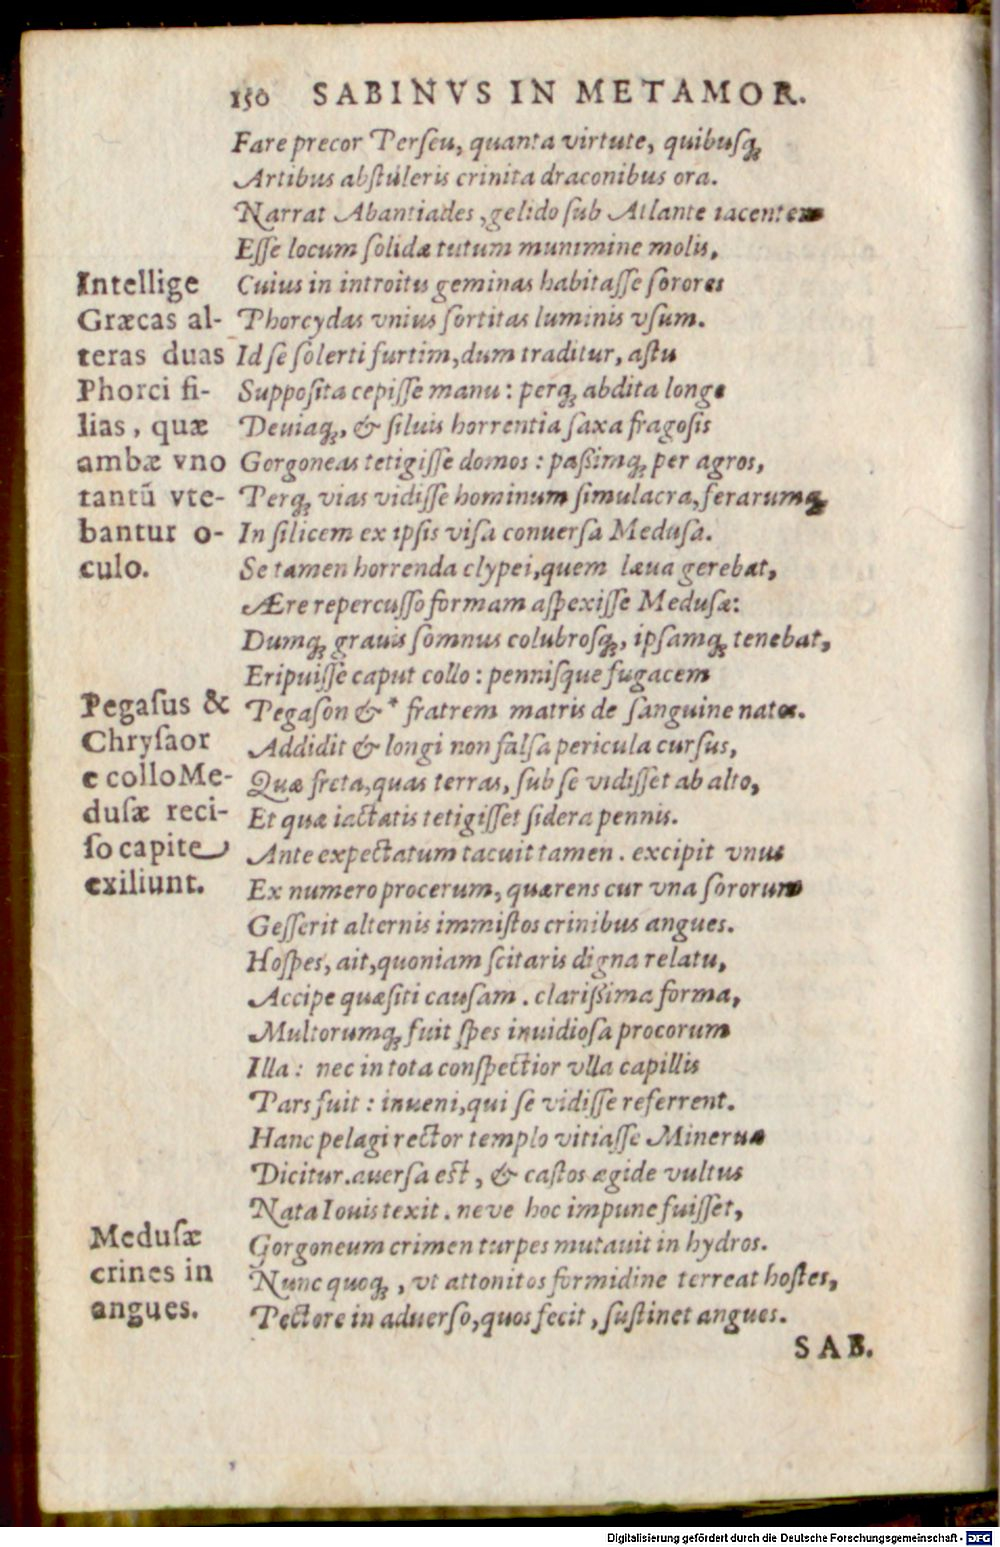 150 SABINVS IN METAMOR.
Fare precor Perſeu, quanta virtute, quibusq́;
Artibus abſtúleris crinita draconibus ora.
Narrat Abantiades, gelido ſub Atlante iacentem
Eſſe locum ſolidæ tutum munimine molis,
Cuius in introitu geminas habitaſſe ſorores
Phorcydas vnius ſortitas luminis vſum.
Id ſe ſolerti furtim, dum traditur, aſtu
Suppoſita cepiſſe manu: perq́; abdita longe
Deuiaq́;, & ſiluis horrentia ſaxa fragoſis
Gorgoneas tetigiſſe domos: paßimq́; per agros,
Perq́; vias vidiſſe hominum ſimulacra, ferarumq́;
In ſilicem ex ipſis viſa conuerſa Meduſa.
Se tamen horrenda clypei, quem læua gerebat,
Ære repercuſſo formam aſpexiſſe Meduſæ:
Dumq́; grauis ſomnus colubrosq́;, ipſamq́; tenebat,
Eripuiſſe caput collo: pennisque fugacem
Pegaſon & * fratrem matris de ſanguine natos.
Addidit & longi non falſa pericula curſus,
Quæ freta, quas terras, ſub ſe vidiſſet ab alto,
Et quæ iactatis tetigiſſet ſidera pennis.
Ante expectatum tacuit tamen. excipit vnus
Ex numero procerum, quærens cur vna ſororum
Geſſerit alternis immiſtos crinibus angues.
Hoſpes, ait, quoniam ſcitaris digna relatu,
Accipe quæſiti cauſam. clarißima forma,
Multorumq́; fuit ſpes inuidioſa procorum
Illa: nec in tota conſpectior vlla capillis
Pars fuit: inueni, qui ſe vidiſſe referrent.
Hanc pelagi rector templo vitiaſſe Mineruæ
Dicitur. auerſa eſt, & caſtos ægide vultus
Nata Iouis texit. neve hoc impune fuiſſet,
Gorgoneum crimen turpes mutauit in hydros.
Nunc quoq́;, vt attonitos formidine terreat hoſtes,
Pectore in aduerſo, quos fecit, ſuſtinet angues.
SAB.
Intellige
Græcas al-
teras duas
Phorci fi-
lias, quæ
ambæ vno
tantũ vte-
bantur o-
culo.
Pegaſus &
Chryſaor
e collo Me-
duſæ reci-
ſo capite
exiliunt.
Meduſæ
crines in
angues.
Digitalisierung gefördert durch die Deutsche Forschungsgemeinschaft - DFG